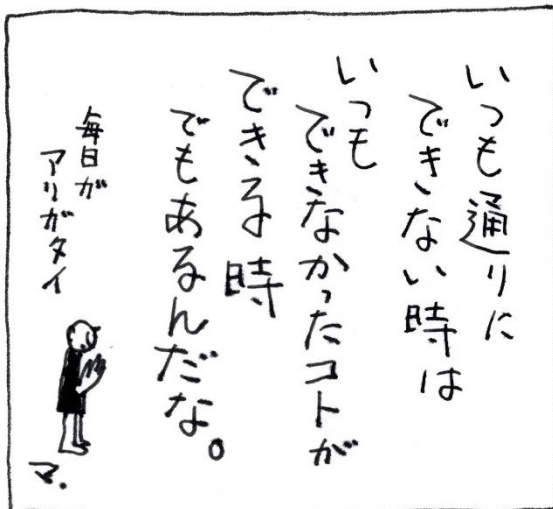 いつも通りに
できない時は
いつも
できなかったコトが
できる時
でもあるんだな。
毎日が
アリガタイ
マ.